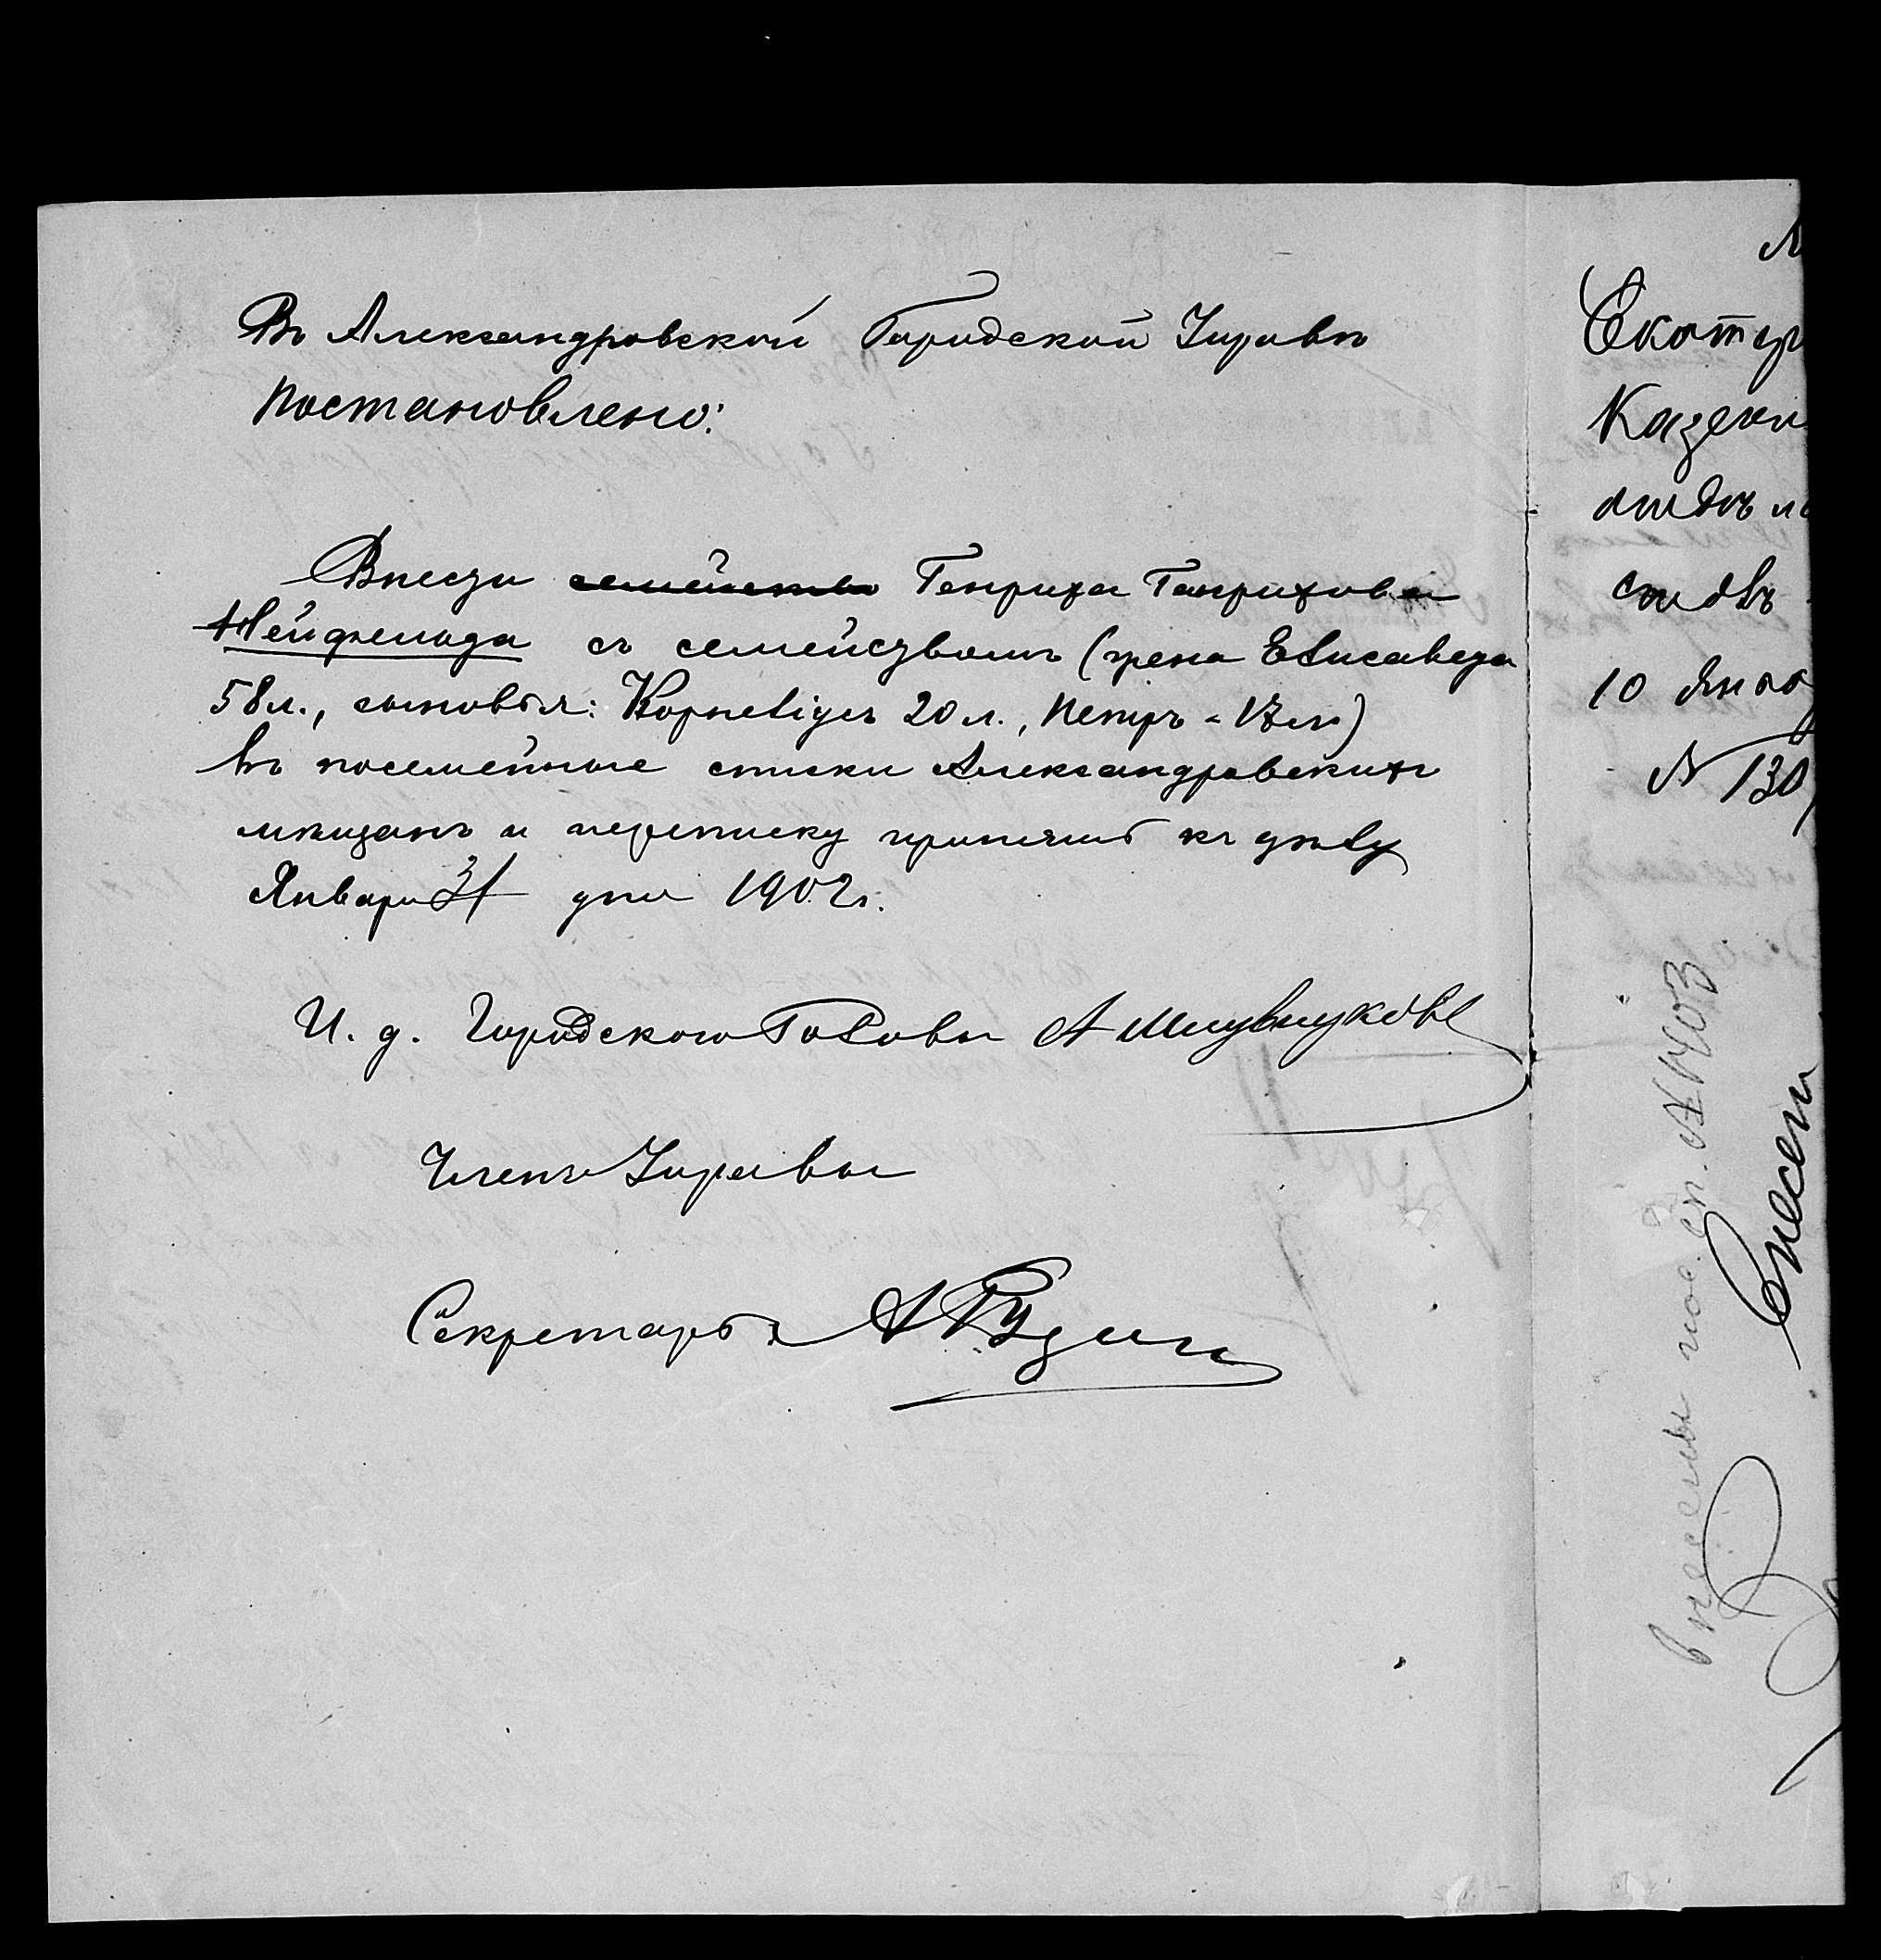 Въ Александровской Городской Управѣ
постановлено:
Внести семейство Генриха Генрихова
Нейфельда съ семействомъ (жена Елисавета
58 л., сыновья: Корнелiусъ 20 л., Петръ - 17 л.)
въ посемейные списки Александровскихъ
мѣщанъ и переписку прiобщить къ дѣлу
Января 31 дня 1902 г.
И. д. Городского Головы А
Членъ Управы
Секретарь А
Екатер
Казенн
отдѣл
столъ
10 Янва
N 130
внесены пос. сп. N 1403